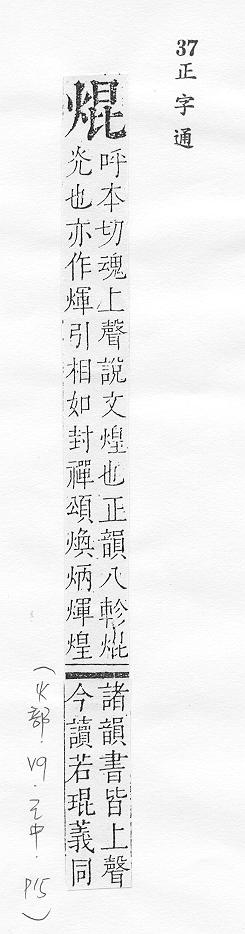 37正字通
焜
呼本切魂上聲說文煌也正韻八軫焜
炗也亦作煇引相如封禪頌煥炳煇煌
諸韻書皆上聲
今讀若琨義同
(火部.V9.巳中.P15)